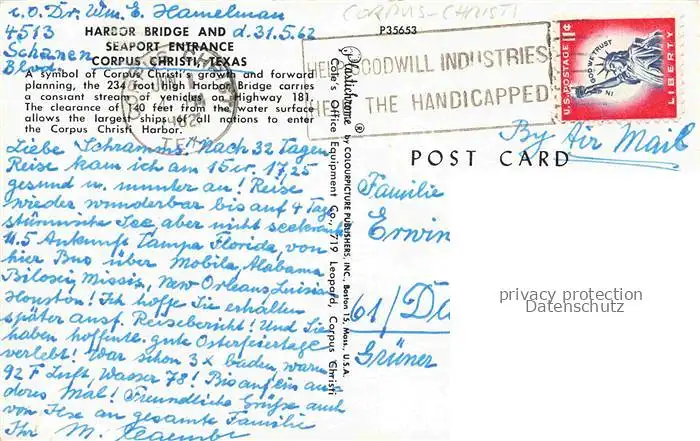 c.o. Dr. Wm. E. Hamelman
CORPUS-CHRISTI
4513
HARBOR BRIDGE AND
d. 31.5.62
P35653
Schanen
SEAPORT ENTRANCE
Blvd.
CORPUS CHRISTI, TEXAS
A symbol of Corpus Christi's growth and forward
planning, the 234 foot high Harbor Bridge carries
a constant stream of vehicles on Highway 181.
The clearance of 140 feet from the water surface
allows the largest ships of all nations to enter
the Corpus Christi Harbor.
Liebe Schramms! Nach 32 Tagen
Reise kam ich am 15. 17,25
gesund u. munter an! Reise
wieder wunderbar bis auf 4 Tage
stürmische See, aber nicht seekrank
Ankunft Tampa Florida, von
hier Bus über Mobila, Alabama
Biloxi, Missis, New Orleans Luisia
Houston! Ich hoffe Sie erhalten
später ausf. Reisebericht! Und Sie
haben hoffentl. gute Osterfeiertage
verlebt! War schon 3x baden, waren
92 F Luft, Wasser 78! Bis auf ein an
deres Mal! Freundliche Grüße auch
von Ilse an gesamte Familie
Ihr M.
Plastichrome ® by COLOURPICTURE PUBLISHERS, INC., Boston 15, Mass., U.S.A.
Cole's Office Equipment Co., 1719 Leopard, Corpus Christi
1962
GOODWILL INDUSTRIES
THE HANDICAPPED
1¢
U.S. POSTAGE
IN GOD WE TRUST
LIBERTY
By Air Mail
POST CARD
Familie
Erwin
61/Da
Grüner
privacy protection
Datenschutz